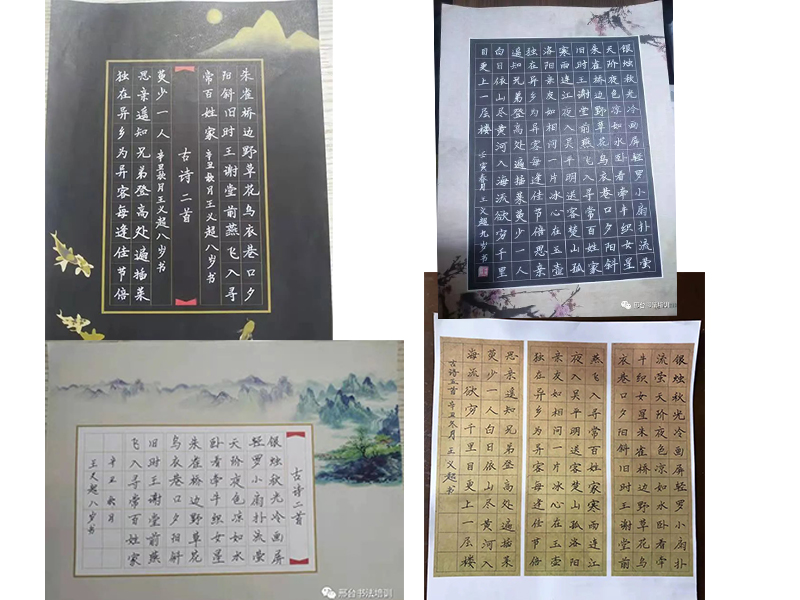 朱雀桥边野草花乌衣巷口夕
阳斜旧时王谢堂前燕飞入寻
常百姓家 辛丑秋月王义超八岁书
古诗二首
独在异乡为异客每逢佳节倍
思亲遥知兄弟登高处遍插茱
萸少一人 辛丑秋月王义超八岁书
银烛秋光冷画屏轻罗小扇扑流萤
天阶夜色凉如水卧看牵牛织女星
朱雀桥边野草花乌衣巷口夕阳斜
旧时王谢堂前燕飞入寻常百姓家
寒雨连江夜入吴平明送客楚山孤
洛阳亲友如相问一片冰心在玉壶
独在异乡为异客每逢佳节倍思亲
遥知兄弟登高处遍插茱萸少一人
白日依山尽黄河入海流欲穷千里
目更上一层楼 壬寅春月王义超九岁书
邢台书法培训
古诗二首
银烛秋光冷画屏
轻罗小扇扑流萤
天阶夜色凉如水
卧看牵牛织女星
朱雀桥边野草花
乌衣巷口夕阳斜
旧时王谢堂前燕
飞入寻常百姓家
辛丑秋月
王义超八岁书
邢台书法培训
银烛秋光冷画屏轻罗小扇扑
流萤天阶夜色凉如水卧看牵
牛织女星朱雀桥边野草花乌
衣巷口夕阳斜旧时王谢堂前
燕飞入寻常百姓家寒雨连江
夜入吴平明送客楚山孤洛阳
亲友如相问一片冰心在玉壶
独在异乡为异客每逢佳节倍
思亲遥知兄弟登高处遍插茱
萸少一人白日依山尽黄河入
海流欲穷千里目更上一层楼
古诗五首 辛丑冬月 王义超书
邢台书法培训